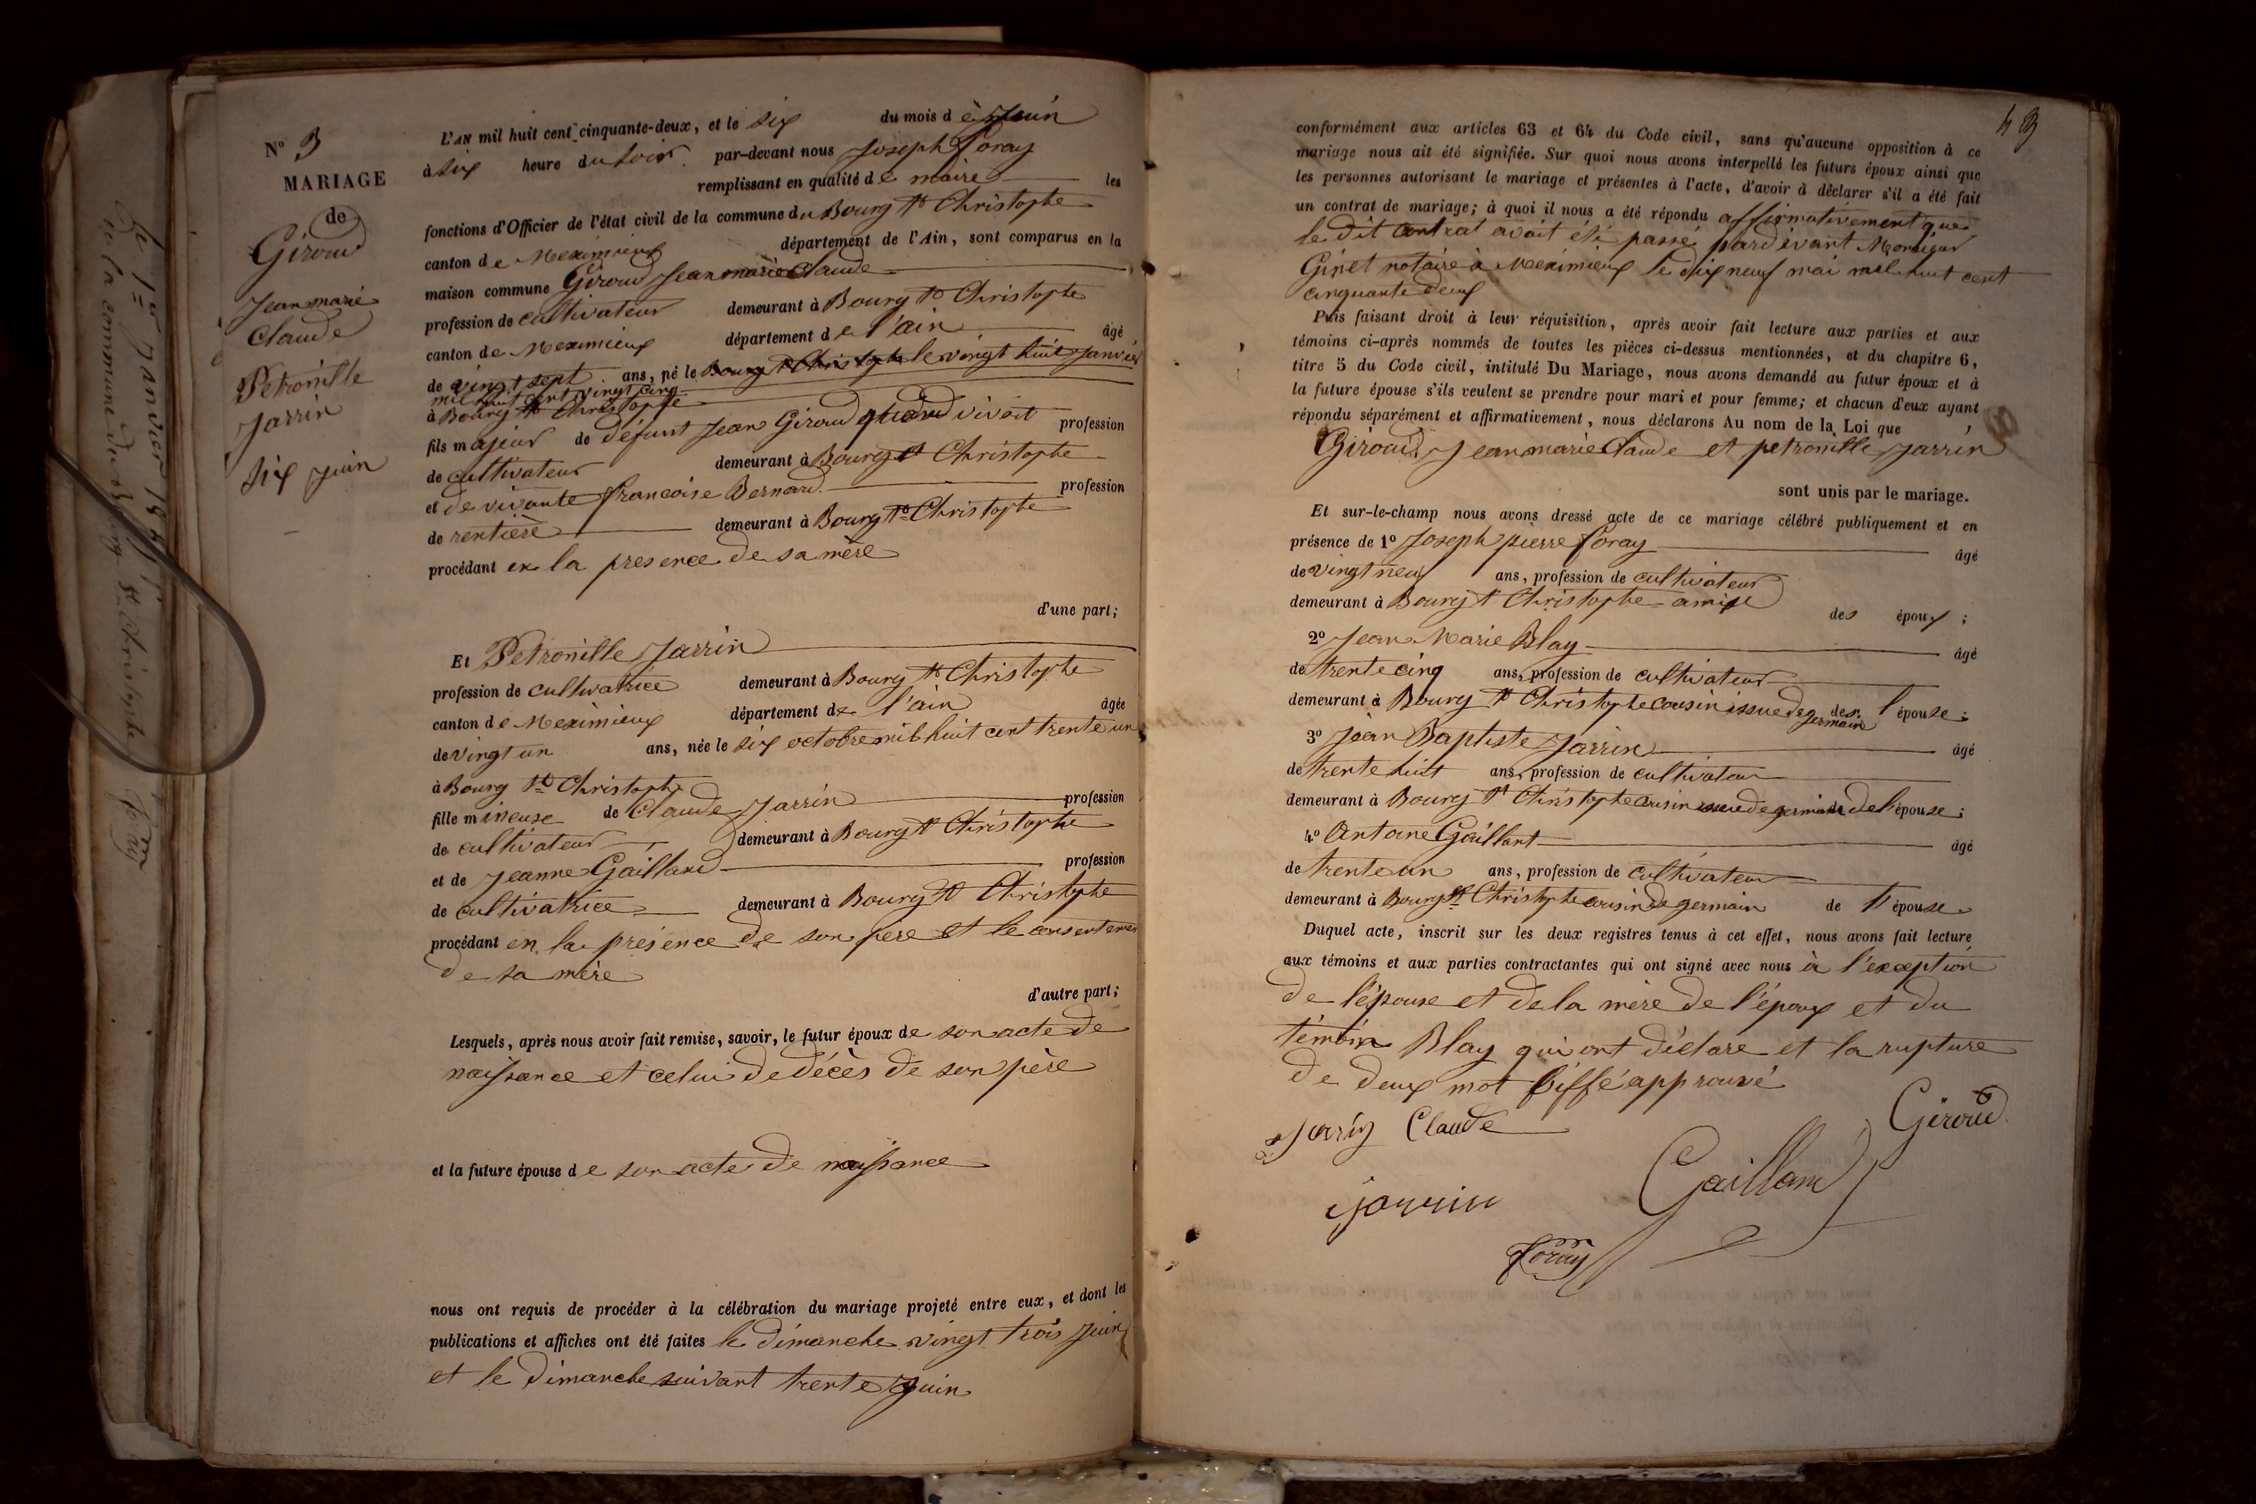 N° 3
MARIAGE
de
Giroud
Jean marie
Claude
Petronille
Jarrin
Six Juin
L'AN mil huit cent cinquante-deux, et le six du mois de Juin
à six heure du soir par-devant nous Joseph Foray
remplissant en qualité de maire les
fonctions d'Officier de l'état civil de la commune du Bourg St Christophe
canton de Meximieux département de l'Ain, sont comparus en la
maison commune Giroud Jean marie Claude
profession de cultivateur demeurant à Bourg St Christophe
canton de Meximieux département de l'ain âgé
de vingt sept ans, né le Bourg St Christophe le vingt huit Janvier
mil huit cent vingt cinq
à Bourg St Christophe
fils majeur de défunt Jean Giroud quand vivait profession
de cultivateur demeurant à Bourg St Christophe
et de vivante francoise Bernard profession
de rentière demeurant à Bourg St Christophe
procédant en la presence de sa mère
d'une part;
Et Petronille Jarrin
profession de cultivatrice demeurant à Bourg St Christophe
canton de Meximieux département de l'ain âgée
de vingt un ans, née le six octobre mil huit cent trente un
à Bourg St Christophe
fille mineuse de Claude Jarrin profession
de cultivateur demeurant à Bourg St Christophe
et de Jeanne Gaillard profession
de cultivatrice demeurant à Bourg St Christophe
procédant en la présence de son père et le consentemen
de sa mère
d'autre part;
Lesquels, après nous avoir fait remise, savoir, le futur époux de son acte de
naissance et celui de décès de son père
et la future épouse de son acte de naissance
nous ont requis de procéder à la célébration du mariage projeté entre eux, et dont les
publications et affiches ont été faites le dimanche vingt trois Juin
et le dimanche suivant trente Juin
conformément aux articles 63 et 64 du Code civil, sans qu'aucune opposition à ce
mariage nous ait été signifiée. Sur quoi nous avons interpellé les futurs époux ainsi que
les personnes autorisant le mariage et présentes à l'acte, d'avoir à déclarer s'il a été fait
un contrat de mariage; à quoi il nous a été répondu affirmativement que
le dit contrat avait été passé pardevant Monsieur
Ginet notaire à Meximieux le dix neuf mai mil huit cent
cinquante deux
Puis faisant droit à leur réquisition, après avoir fait lecture aux parties et aux
témoins ci-après nommés de toutes les pièces ci-dessus mentionnées, et du chapitre 6,
titre 5 du Code civil, intitulé Du Mariage, nous avons demandé au futur époux et à
la future épouse s'ils veulent se prendre pour mari et pour femme; et chacun d'eux ayant
répondu séparément et affirmativement, nous déclarons Au nom de la Loi que
Giroud Jean marie Claude et petronille Jarrin
sont unis par le mariage.
Et sur-le-champ nous avons dressé acte de ce mariage célébré publiquement et en
présence de 1° Joseph pierre foray âgé
de vingt neuf ans, profession de cultivateur
demeurant à Bourg St Christophe des époux;
2° Jean Marie Blay âgé
de trente cinq ans, profession de cultivateur
demeurant à Bourg St Christophe cousin issue de germain des l'épouse;
3° Jean Baptiste Jarrin âgé
de trente huit ans, profession de cultivateur
demeurant à Bourg St Christophe cousin issue de germain de l'épouse;
4° Antoine Gaillart âgé
de trente un ans, profession de cultivateur
demeurant à Bourg St Christophe cousin de germain de l'épouse.
Duquel acte, inscrit sur les deux registres tenus à cet effet, nous avons fait lecture
aux témoins et aux parties contractantes qui ont signé avec nous à l'exception
de l'épouse et de la mère de l'époux et du
témoin Blay qui ont déclare et la rupture
de deux mot biffé approuvé
Jarrin Claude
Giroud
Jarrin
Gaillard
foray